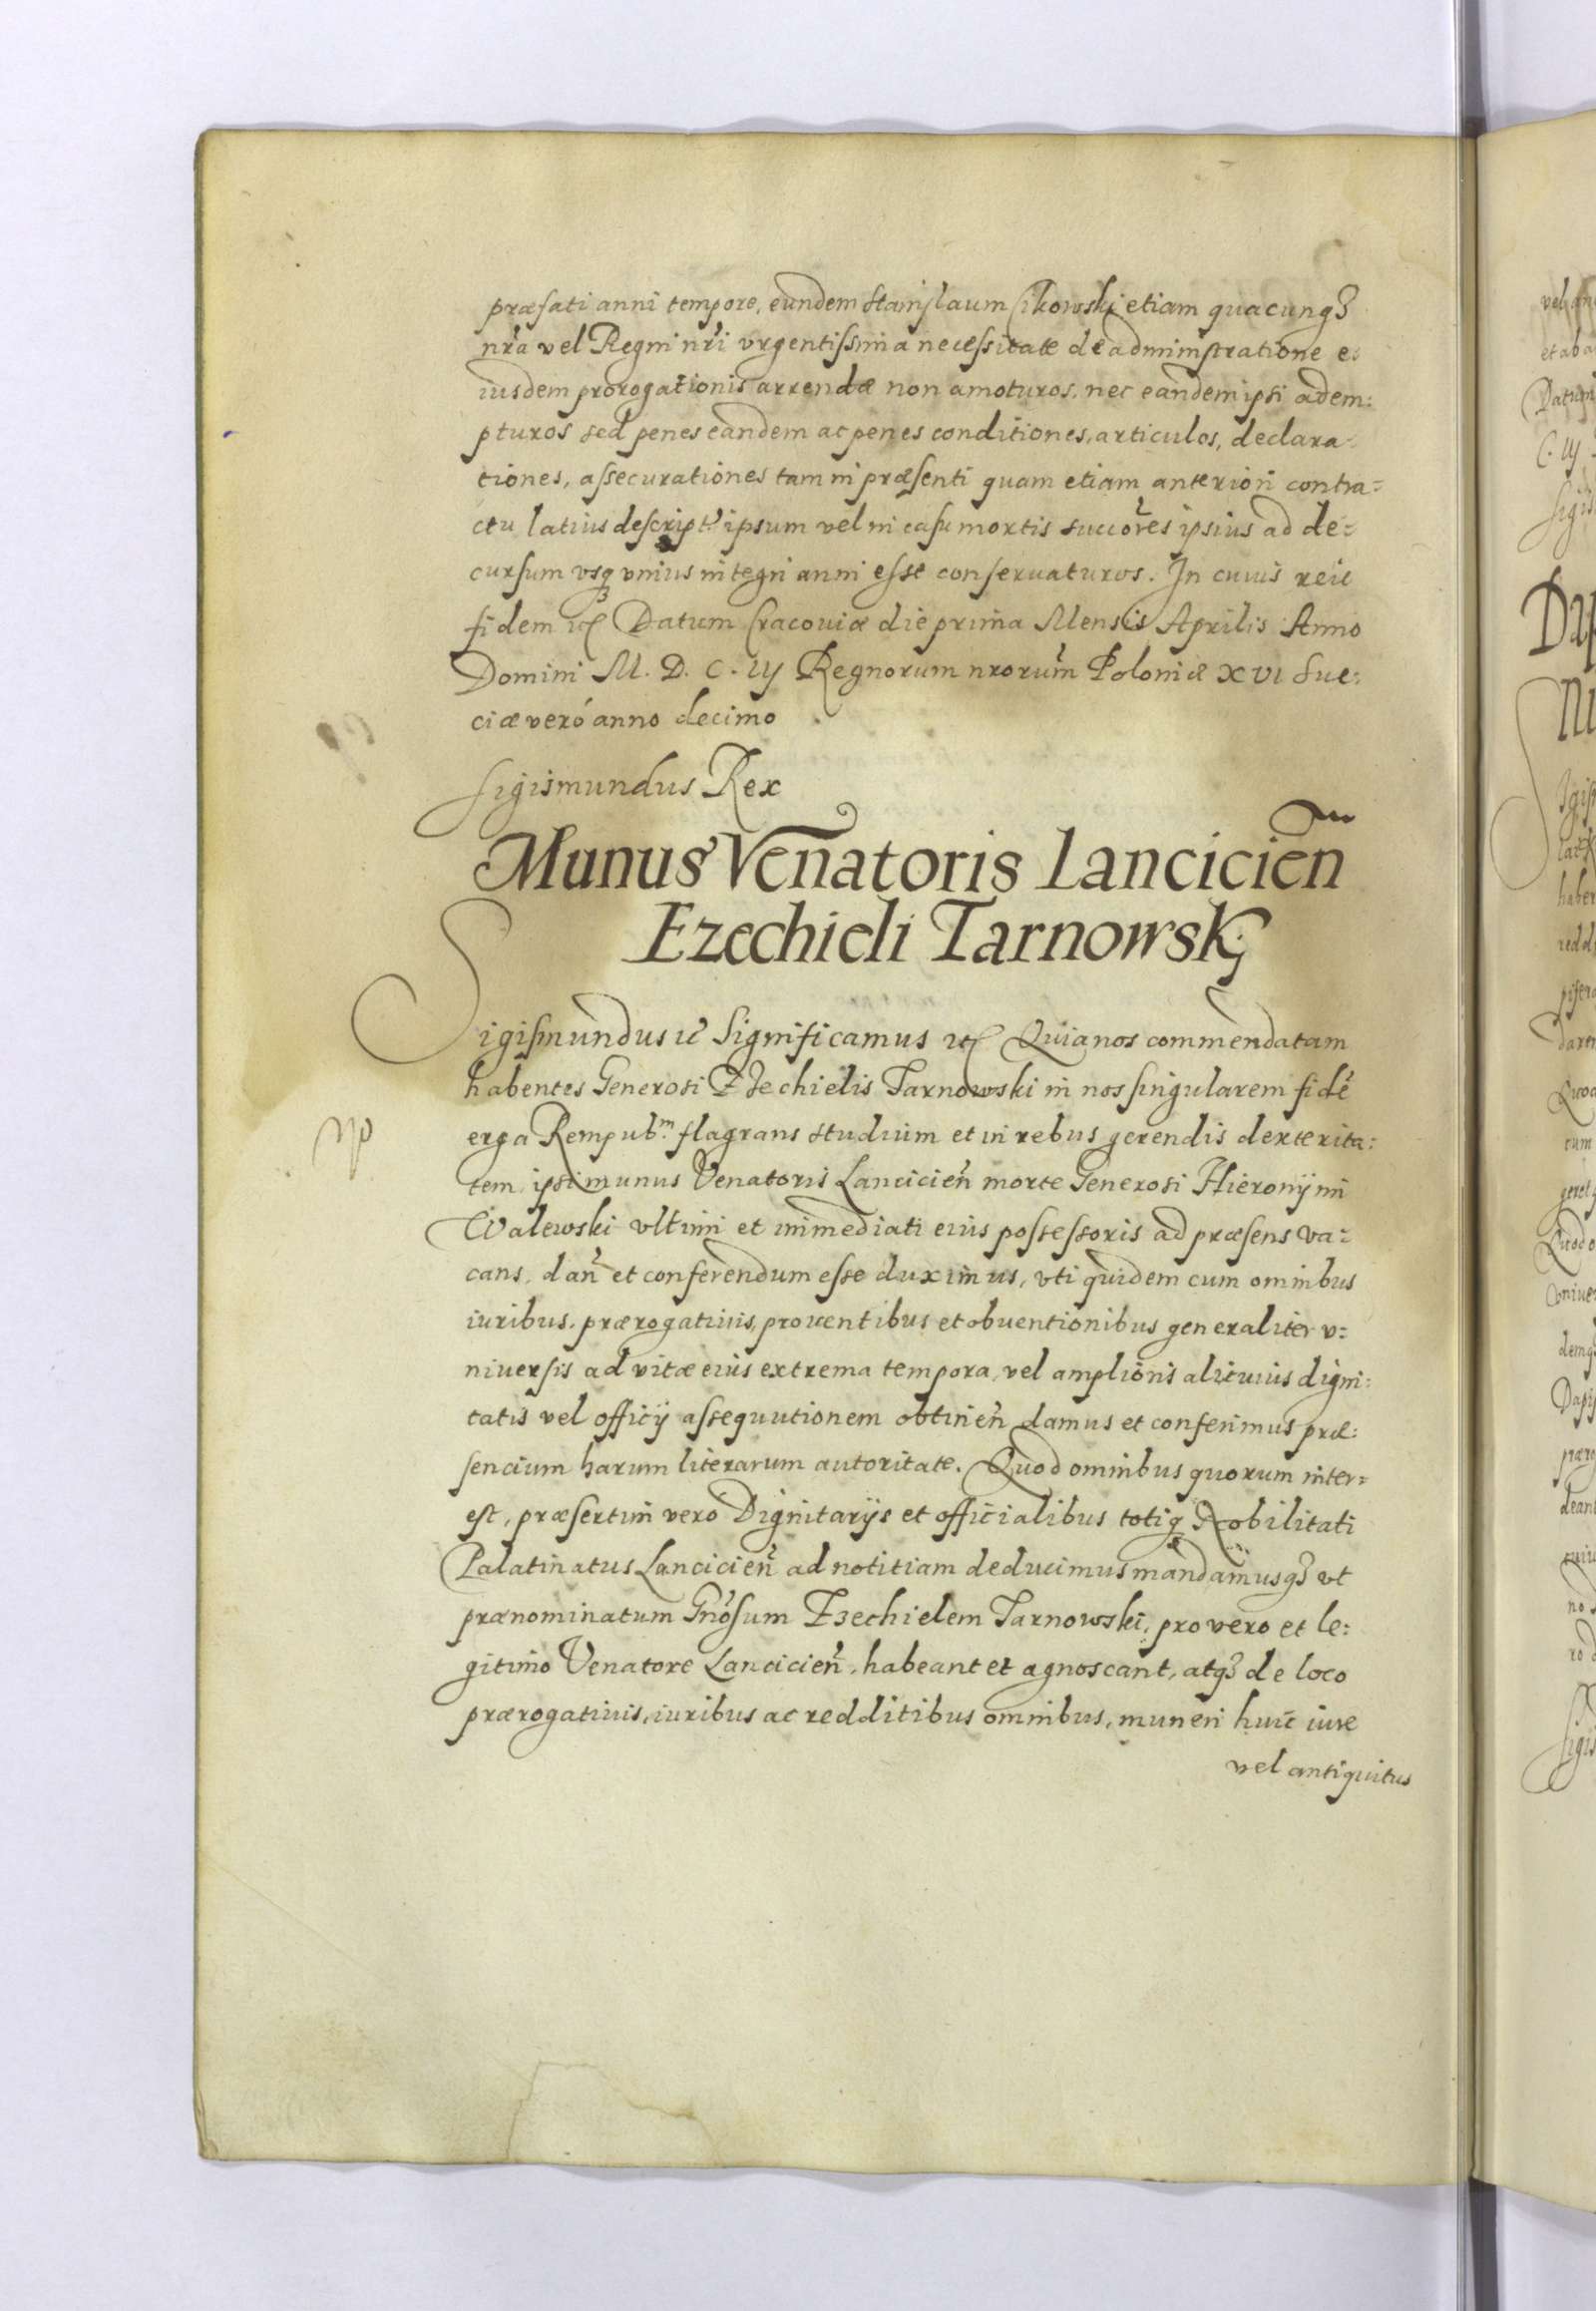 præfati anni tempore, eundem Stanislaum Cikowski etiam quacunqȝ
nr̃a vel Regni nr̃i vrgentissima necessitate de administratione e
iusdem prorogationis arrendæ non amoturos, nec eandem ipsi adem:
pturos sed penes eandem ac penes conditiones, articulos, declara
tiones, assecurationes tam in præsenti quam etiam anteriori contra=
ctu latius descript' ipsum vel in casu mortis succo͠res ipsius ad de=
cursum vsqȝ vnius integri anni esse conseruaturos. In cuius rei
fidem etc̃ Datum Cracouiæ die prima Mensis Aprilis Anno
Domini M. D. C. iij Regnorum nrorum̃ Poloniæ XVI Sue:
ciæ veró anno decimo
Sigismundus Rex
Munus Venatoris Lancicien̄
Ezechieli Tarnowskj
Sigismundus etc̃ Significamus etc̃ Quia nos commendatam
habentes Generosi Ezechielis Tarnowski in nos singularem fidẽ
erga Rempub.m flagrans studium et in rebus gerendis dexterita:
tem, ipsi munus Venatoris Lancicien̄ morte Generosi Hieronÿmi
Walewski vltimi et immediati eius possessoris ad præsens va=
cans, dan̄ et conferendum esse duximus, vti quidem cum omnibus
iuribus, prærogatiuis, prouentibus et obuentionibus generaliter v=
niuersis ad vitæ eius extrema tempora, vel amplioris alicuius digni:
tatis vel officij assequutionem obtinen̄ damus et conferimus præ:
sencium harum literarum autoritate. Quod omnibus quorum inter=
est, præsertim vero Dignitarijs et officialibus totiqȝ Nobilitati
Palatinatus Lancicien̄ ad notitiam deducimus mandamusqȝ vt
prænominatum Gnõsum Ezechielem Tarnowski, pro vero et le:
gitimo Venatore Lancicien̄, habeant et agnoscant, atqȝ de loco
prærogatiuis, iuribus ac redditibus omnibus, muneri huic iure
vel antiquitus